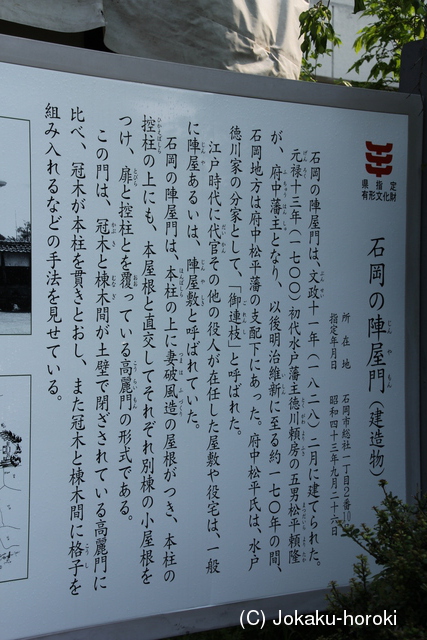 県指定
有形文化財
石岡の陣屋門（建造物）
所在地　石岡市総社一丁目２番10
指定年月日　昭和四十三年九月二十六日
石岡の陣屋門は、文政十一年（一八二八）二月に建てられた。
元禄十三年（一七〇〇）初代水戸藩主徳川頼房の五男松平頼隆
が、府中藩主となり、以後明治維新に至る約一七〇年の間、
石岡地方は府中松平藩の支配下にあった。府中松平氏は、水戸
徳川家の分家として、「御連枝」と呼ばれた。
江戸時代に代官その他の役人が在任した屋敷や役宅は、一般
に陣屋あるいは、陣屋敷と呼ばれていた。
石岡の陣屋門は、本柱の上に妻破風造の屋根がつき、本柱の
控柱の上にも、本屋根と直交してそれぞれ別棟の小屋根を
つけ、扉と控柱とを覆っている高麗門の形式である。
この門は、冠木と楝木間が土壁で閉ざされている高麗門に
比べ、冠木が本柱を貫きとおし、また冠木と楝木間に格子を
組み入れるなどの手法を見せている。
(C) Jokaku-horoki